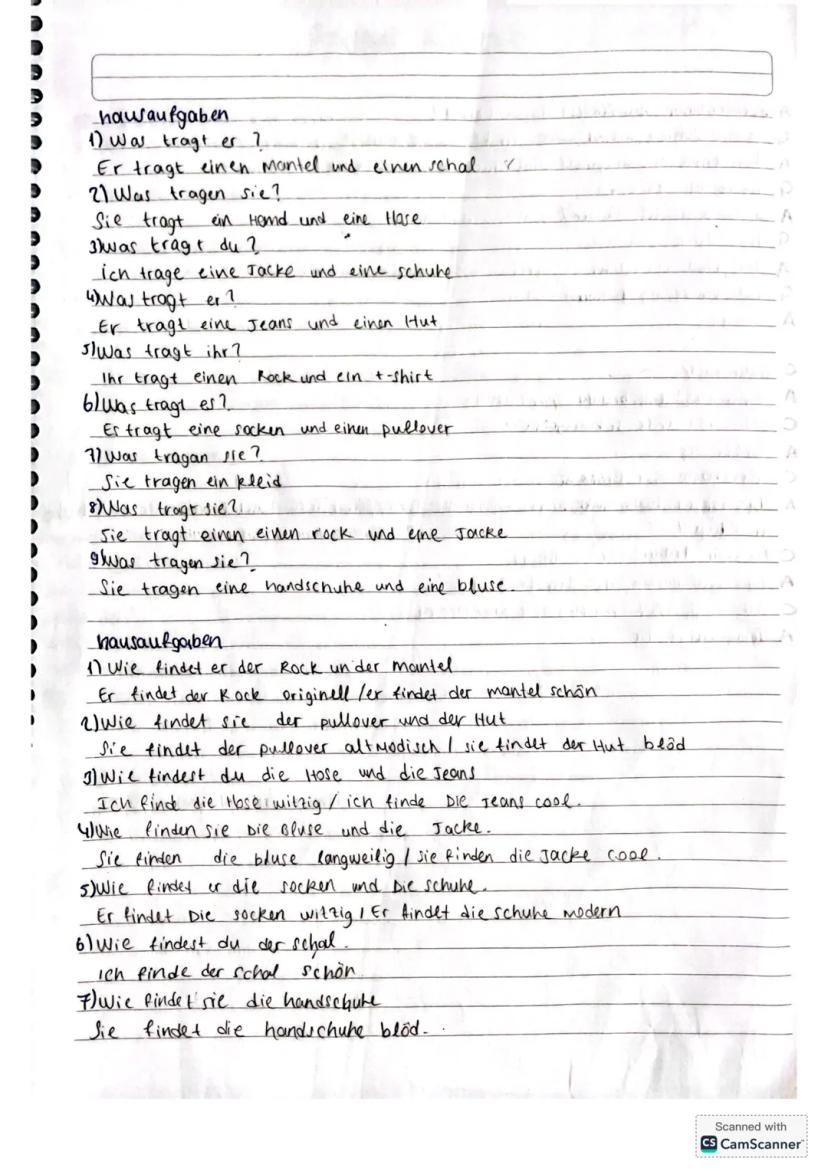 hausaufgaben
1) Was tragt er ?
Er tragt einen Mantel und einen schal
2) Was tragen sie?
Sie tragt ein Hemd und eine Hose
3) Was tragt du ?
ich trage eine Jacke und eine schuhe
4) Was tragt er ?
Er tragt eine Jeans und einen Hut
5) Was tragt ihr ?
Ihr tragt einen Rock und ein t-shirt
6) Was tragt es ?
Es tragt eine socken und einen pullover
7) Was tragan sie ?
Sie tragen ein kleid
8) Was tragt sie ?
Sie tragt einen einen rock und eine Jacke
9) Was tragen sie ?
Sie tragen eine handschuhe und eine bluse.
hausaufgaben
1) Wie findet er der Rock un der mantel
Er findet der Rock originell / er findet der mantel schön
2) Wie findet sie der pullover und der Hut
Sie findet der pullover altmodisch / sie findet der Hut blöd
3) Wie findest du die Hose und die Jeans
Ich finde die Hose witzig / ich finde Die Jeans cool.
4) Wie finden sie Die Bluse und die Jacke.
Sie finden die bluse langweilig / sie finden die Jacke cool.
5) Wie findet er die socken und Die schuhe.
Er findet Die socken witzig / Er findet die schuhe modern
6) Wie findest du der schal.
ich finde der schal schön
7) Wie findet sie die handschuhe
Sie findet die handschuhe blöd.
Scanned with
CS CamScanner